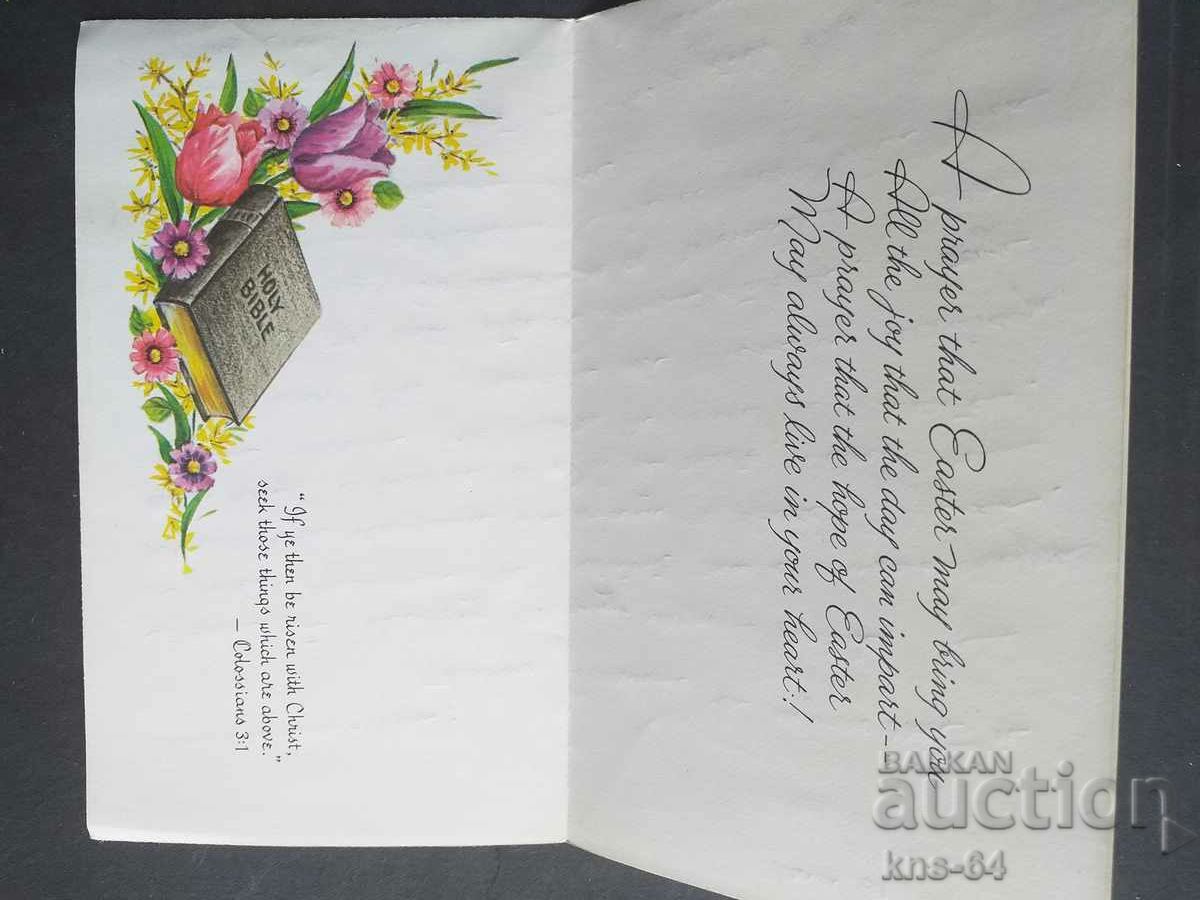 HOLY
BIBLE
“If ye then be risen with Christ,
seek those things which are above.”
— Colossians 3:1
A prayer that Easter may bring you
All the joy that the day can impart—
A prayer that the hope of Easter
May always live in your heart!
BALKAN
auction
kns-64